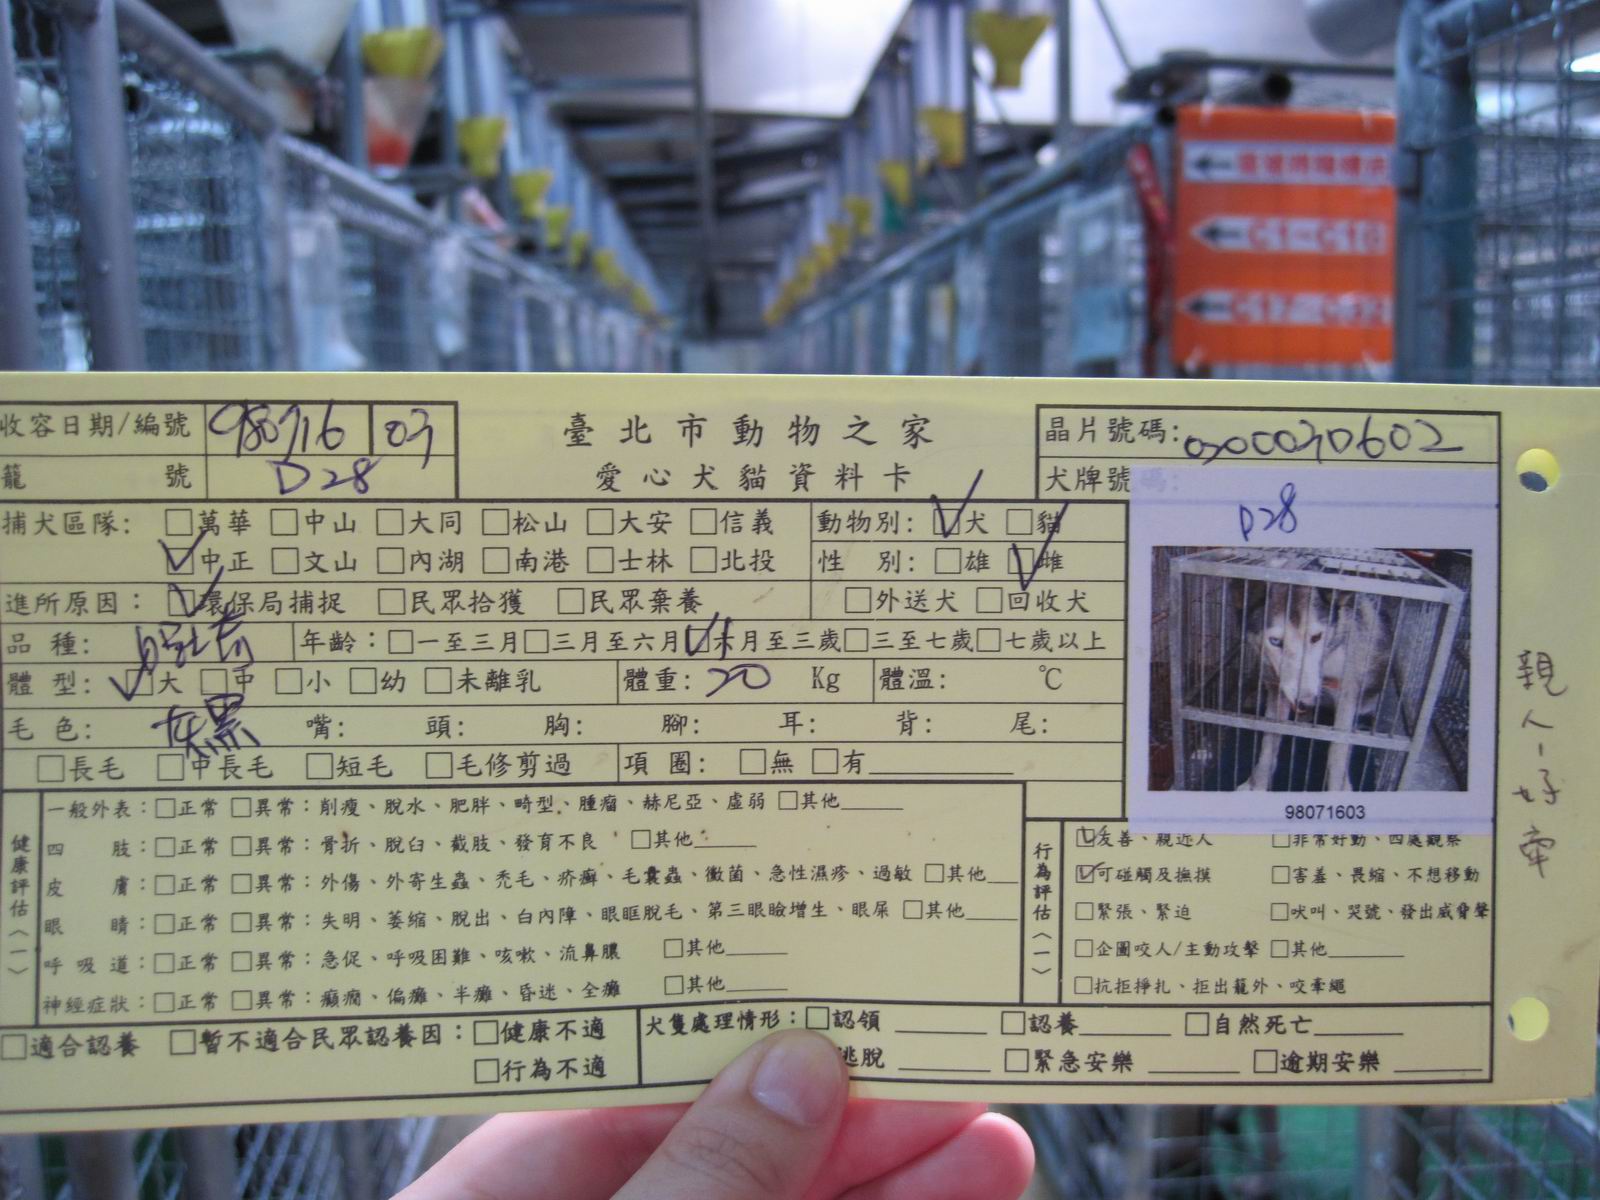 收容日期/編號 980716 03
臺北市動物之家
晶片號碼:
籠號 D28
愛心犬貓資料卡
犬牌號碼:
捕犬區隊: □萬華 □中山 □大同 □松山 □大安 □信義
動物別: ☑犬 □貓
D28
☑中正 □文山 □內湖 □南港 □士林 □北投
性別: □雄 ☑雌
進所原因: ☑環保局捕捉 □民眾拾獲 □民眾棄養
□外送犬 □回收犬
品種:
年齡: □一至三月 □三月至六月 ☑六月至三歲 □三至七歲 □七歲以上
體型: ☑大 □中 □小 □幼 □未離乳 體重: 20 Kg 體溫: ℃
毛色: 灰黑 嘴: 頭: 胸: 腳: 耳: 背: 尾:
□長毛 □中長毛 □短毛 □毛修剪過 項圈: □無 □有
98071603
親人、好牽
健康評估(一)
一般外表: □正常 □異常: 削瘦、脫水、肥胖、畸型、腫瘤、赫尼亞、虛弱 □其他
四肢: □正常 □異常: 骨折、脫臼、截肢、發育不良 □其他
皮膚: □正常 □異常: 外傷、外寄生蟲、禿毛、疥癬、毛囊蟲、黴菌、急性濕疹、過敏 □其他
眼睛: □正常 □異常: 失明、萎縮、脫出、白內障、眼眶脫毛、第三眼瞼增生、眼屎 □其他
呼吸道: □正常 □異常: 急促、呼吸困難、咳嗽、流鼻膿 □其他
神經症狀: □正常 □異常: 癲癇、偏癱、半癱、昏迷、全癱 □其他
行為評估(一)
☑友善、親近人 □非常好動、四處觀察
☑可碰觸及撫摸 □害羞、畏縮、不想移動
□緊張、緊迫 □吠叫、哭號、發出威脅聲
□企圖咬人/主動攻擊 □其他
□抗拒掙扎、拒出籠外、咬牽繩
□適合認養 □暫不適合民眾認養因: □健康不適
□行為不適
犬隻處理情形: □認領 □認養 □自然死亡
逃脫 □緊急安樂 □逾期安樂